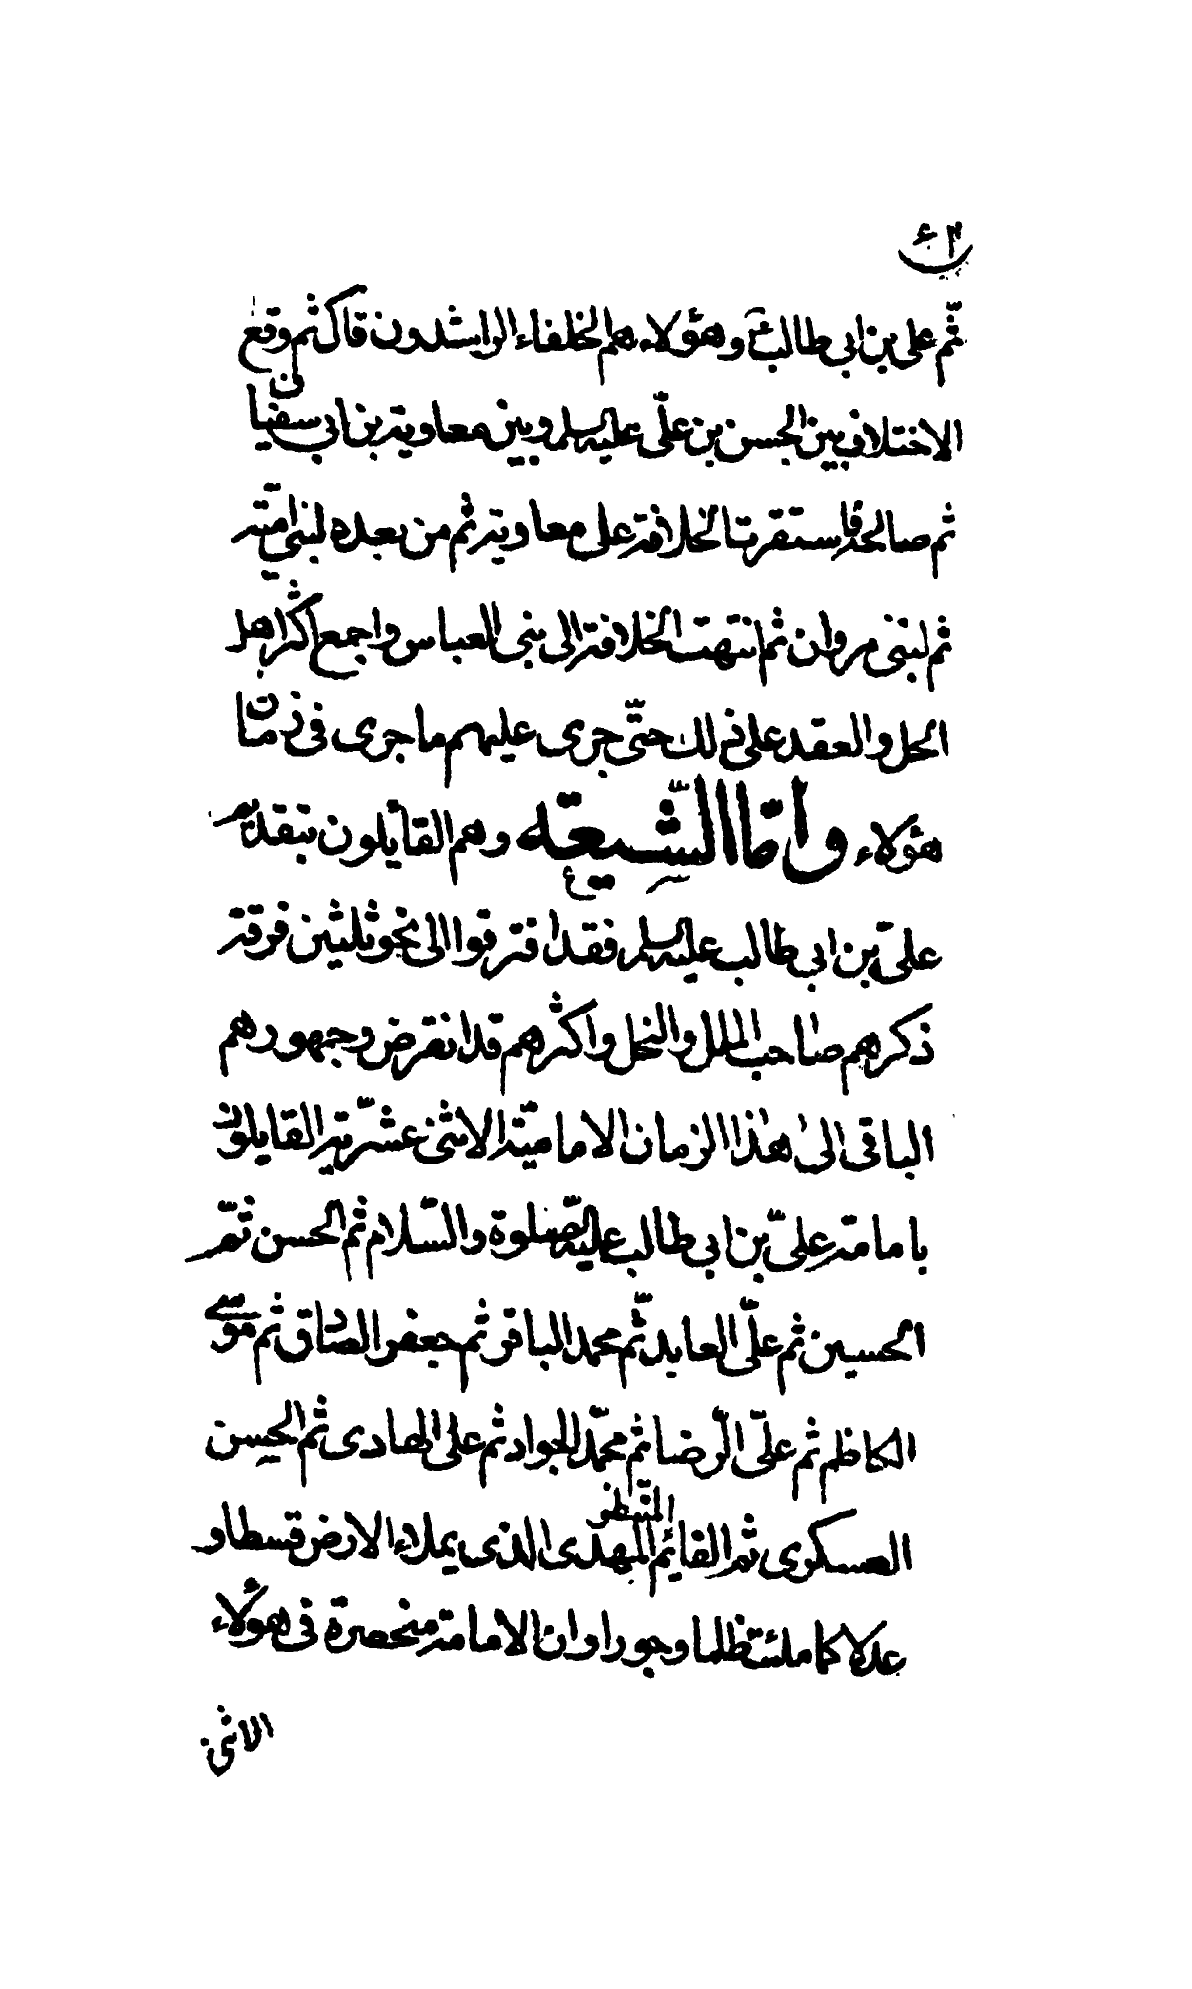 ثم علی بن ابی طالب ع وهؤلاء هم الخلفاء الراشدون قال ثم وقع
الاختلاف بین الحسن بن علّی علیه السلم وبین معاویة بن ابی سفیان
ثم صالحه فاستقرت الخلافة علی معاویة ثم من بعده لبنی امیّة
ثم لبنی مروان ثم انتهت الخلافة الی بنی العباس واجمع اکثر اهل
الحل والعقد علی ذلك حتّی جری علیهم ما جری فی زمان
هؤلاء وامّا الشّیعة وهم القایلون بتقدیم
علیّ بن ابی طالب علیه السلم فقد افترقوا الی نحو ثلثین فرقة
ذکرهم صاحب الملل والنحل واکثرهم قد انقرض وجمهورهم
الباقی الی هذا الزمان الامامیّة الاثنی عشّریة القایلون
بامامة علیّ بن ابی طالب علیه الصّلوة والسّلام ثم الحسن ثمّ
الحسین ثم علّی العابد ثّم محمد الباقر ثم جعفر الصادق ثم موسی
الکاظم ثم علیّ الرّضا ثم محمّد الجواد ثم علی الهادی ثم الحسن
العسکری ثم القایم المنتظر المهدی الذی یملاء الارض قسطا و
عدلا کما ملئت ظلما وجورا وان الامامة منحصرة فی هؤلاء
الاثنی